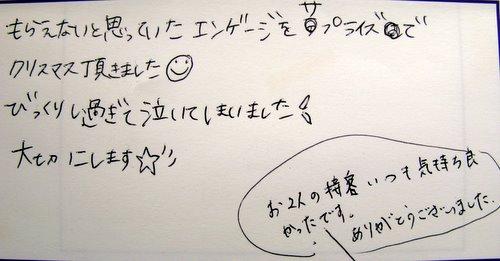 もらえないと思っていたエンゲージをサプライズで
クリスマス頂きました
びっくりし過ぎて泣いてしまいました!
大切にします☆
お2人の接客いつも気持ち良
かったです。
ありがとうございました。